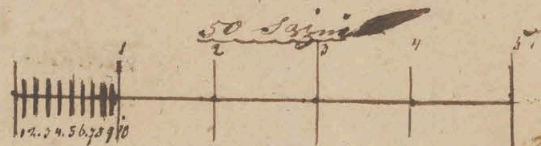 50 Sajini
1 2 3 4 5
1 2 3 4 5 6 7 8 9 10